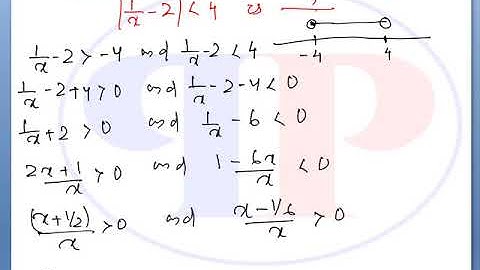 |1/x - 2| < 4 is
-4 4
1/x - 2 > -4 and 1/x - 2 < 4
1/x - 2 + 4 > 0 and 1/x - 2 - 4 < 0
1/x + 2 > 0 and 1/x - 6 < 0
2x + 1/x > 0 and 1 - 6x/x < 0
(x + 1/2)/x > 0 and x - 1/6/x > 0